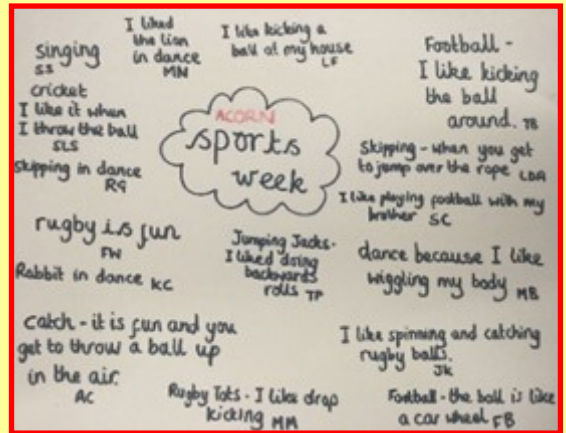 I liked
the lion
in dance
MN
I like kicking a
ball at my house
LF
Football -
I like kicking
the ball
around. TB
singing
SS
cricket
I like it when
I throw the ball
SLS
ACORN
sports
week
Skipping - when you get
to jump over the rope LDA
Skipping in dance
RG
I like playing football with my
brother SC
rugby is fun
FW
Jumping Jacks-
I liked doing
backwards
rolls TP
dance because I like
wiggling my body MB
Rabbit in dance KC
Catch - it is fun and you
get to throw a ball up
in the air.
AC
I like spinning and catching
rugby balls.
JK
Rugby Tots - I like drop
kicking MM
Football - the ball is like
a car wheel FB